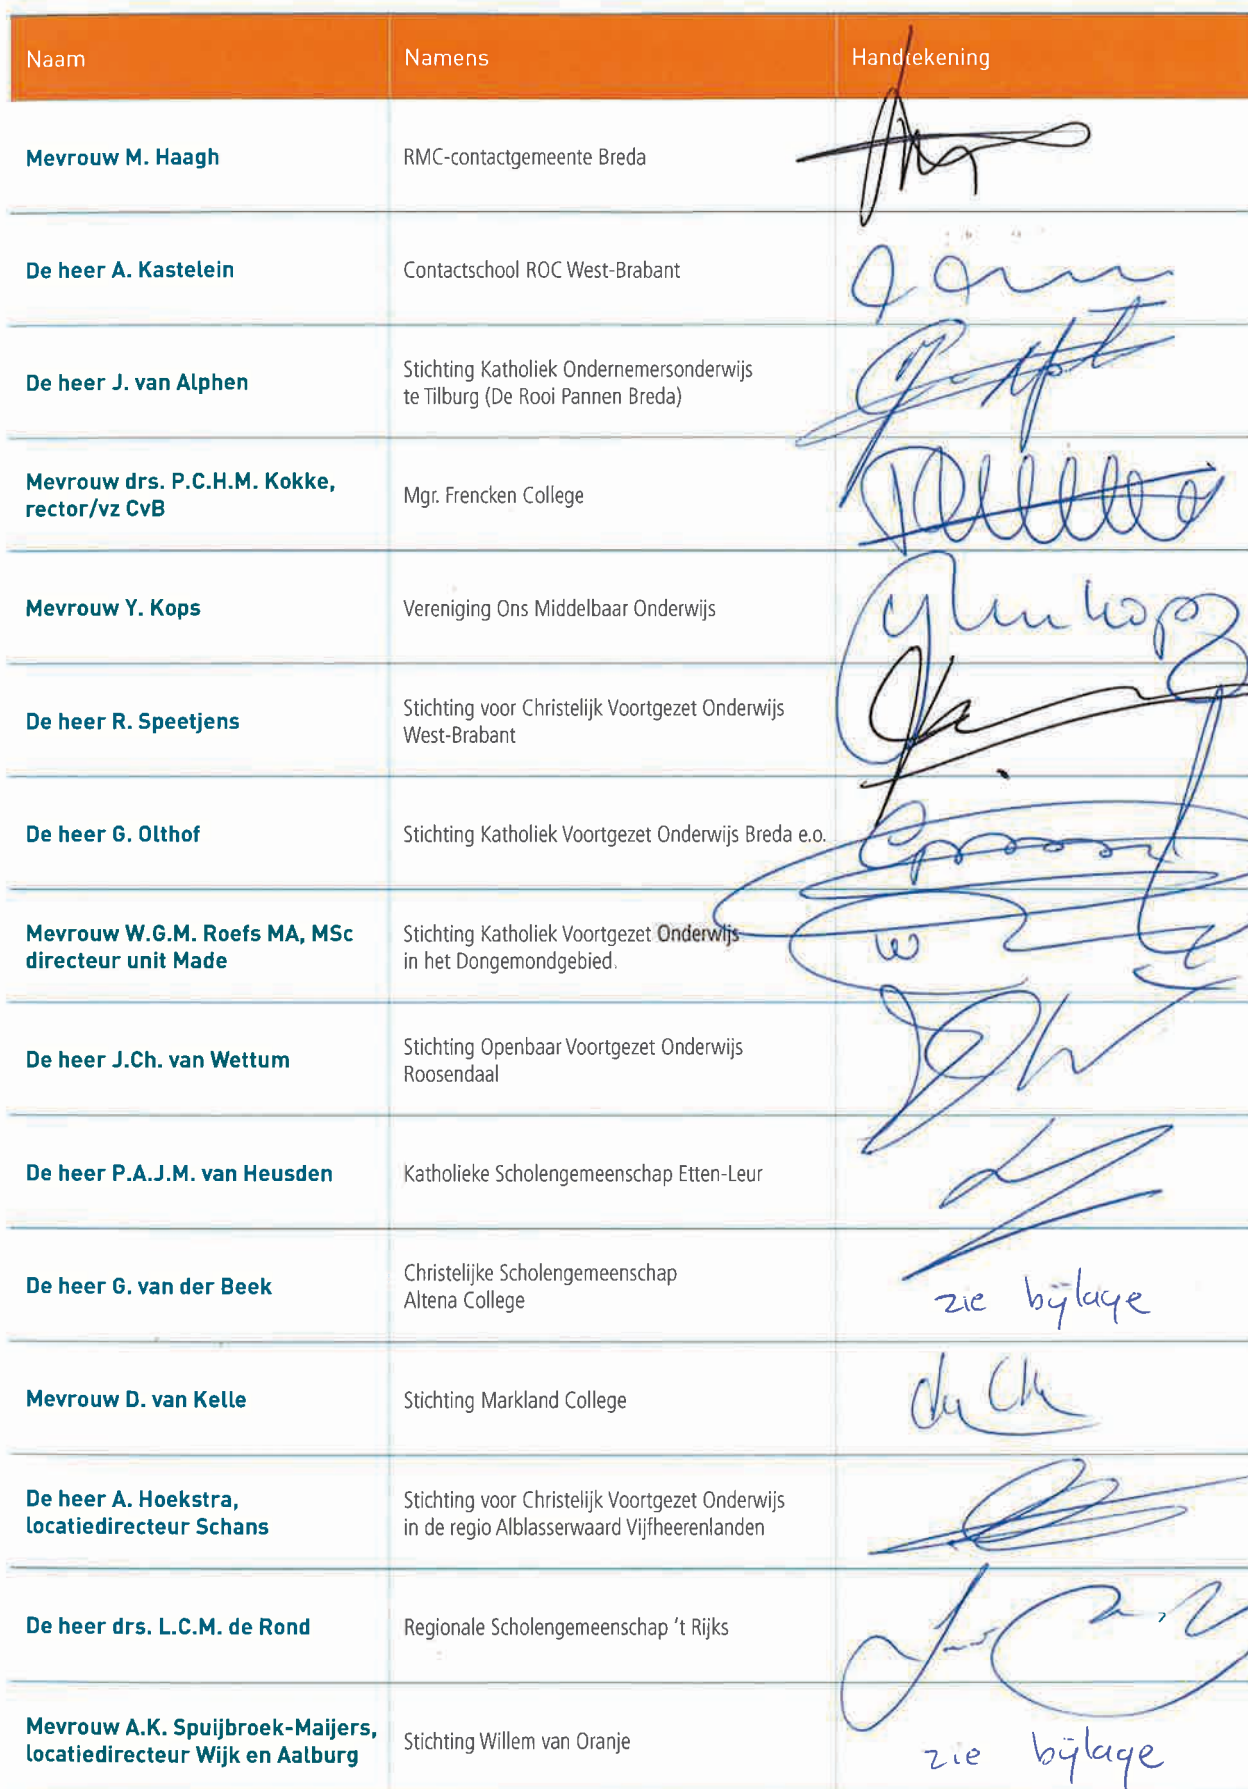 Naam Namens Handtekening
Mevrouw M. Haagh RMC-contactgemeente Breda
De heer A. Kastelein Contactschool ROC West-Brabant
De heer J. van Alphen Stichting Katholiek Ondernemersonderwijs
te Tilburg (De Rooi Pannen Breda)
Mevrouw drs. P.C.H.M. Kokke,
rector/vz CvB Mgr. Frencken College
Mevrouw Y. Kops Vereniging Ons Middelbaar Onderwijs
De heer R. Speetjens Stichting voor Christelijk Voortgezet Onderwijs
West-Brabant
De heer G. Olthof Stichting Katholiek Voortgezet Onderwijs Breda e.o.
Mevrouw W.G.M. Roefs MA, MSc Stichting Katholiek Voortgezet Onderwijs
directeur unit Made in het Dongemondgebied.
De heer J.Ch. van Wettum Stichting Openbaar Voortgezet Onderwijs
Roosendaal
De heer P.A.J.M. van Heusden Katholieke Scholengemeenschap Etten-Leur
De heer G. van der Beek Christelijke Scholengemeenschap
Altena College zie bijlage
Mevrouw D. van Kelle Stichting Markland College
De heer A. Hoekstra, Stichting voor Christelijk Voortgezet Onderwijs
locatiedirecteur Schans in de regio Alblasserwaard Vijfheerenlanden
De heer drs. L.C.M. de Rond Regionale Scholengemeenschap 't Rijks
Mevrouw A.K. Spuijbroek-Maijers,
locatiedirecteur Wijk en Aalburg Stichting Willem van Oranje zie bijlage